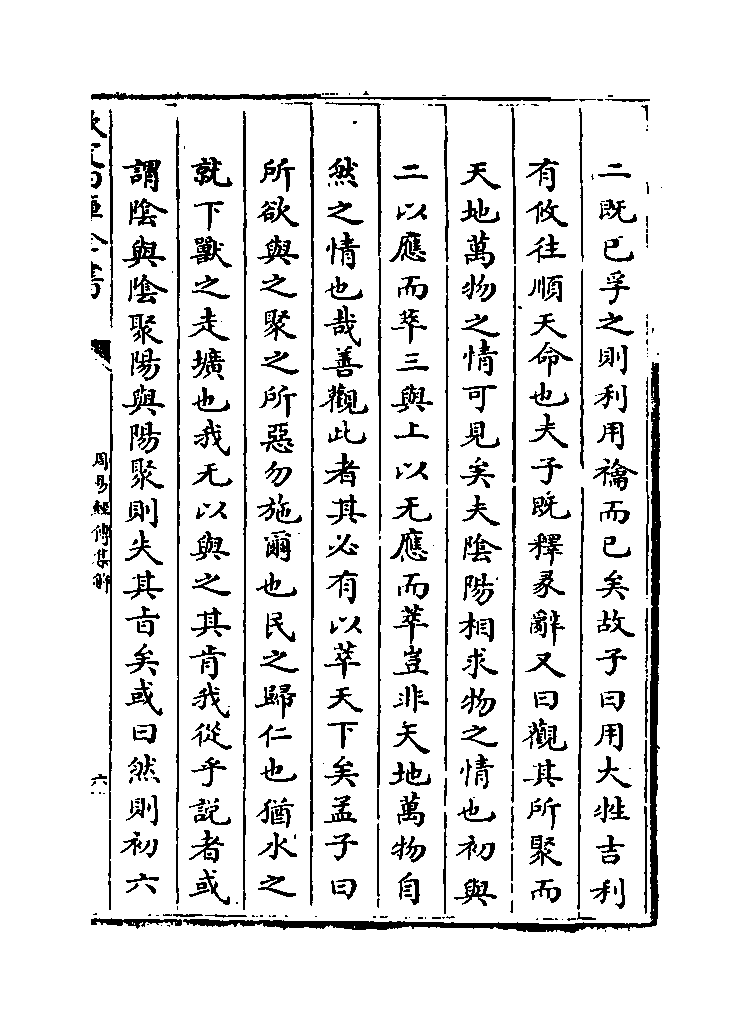 二既已孚之則利用禴而已矣故子曰用大牲吉利
有攸往順天命也夫子既釋彖辭又曰觀其所聚而
天地萬物之情可見矣夫陰陽相求物之情也初與
二以應而萃三與上以无應而萃豈非天地萬物自
然之情也哉善觀此者其必有以萃天下矣孟子曰
所欲與之聚之所惡勿施爾也民之歸仁也猶水之
就下獸之走壙也我无以與之其肯我從乎説者或
謂陰與陰聚陽與陽聚則失其旨矣或曰然則初六
欽定四庫全書
周易經傳集解
六